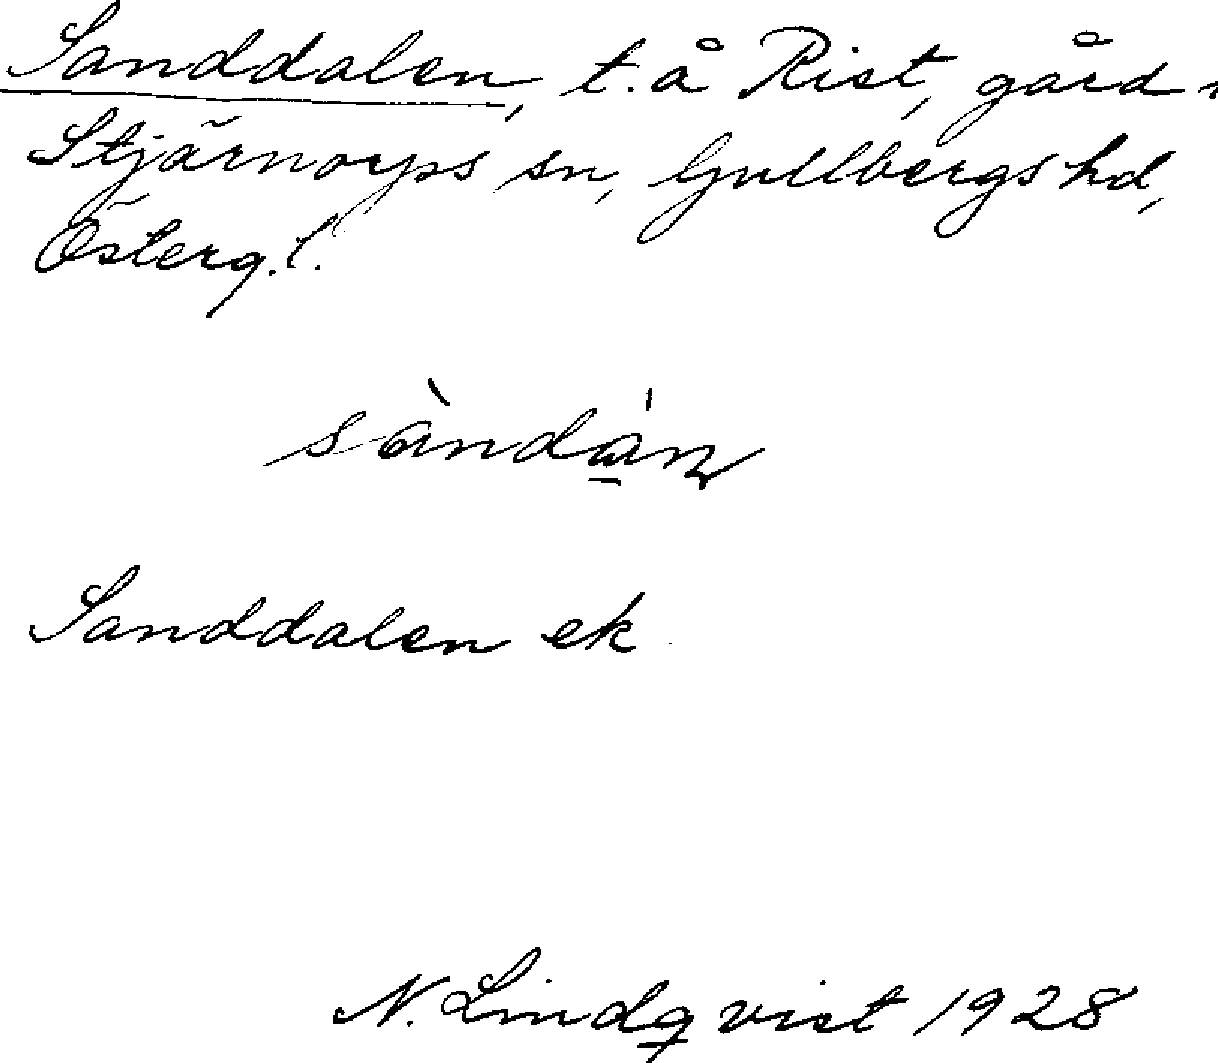 Sanddalen, t. å Rist, gård
Stjärnorps sn, Gullbergs hd,
Österg. l.
sàndán
Sanddalen ek
N. Lindqvist 1928